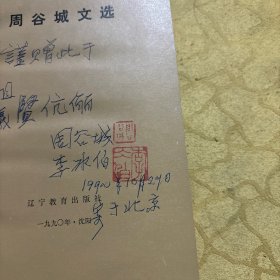 周谷城文选
謹贈此于
賢伉俪
周谷城
李冰伯
1990年10月29日
寄于北京
辽宁教育出版社
一九九〇年·沈阳